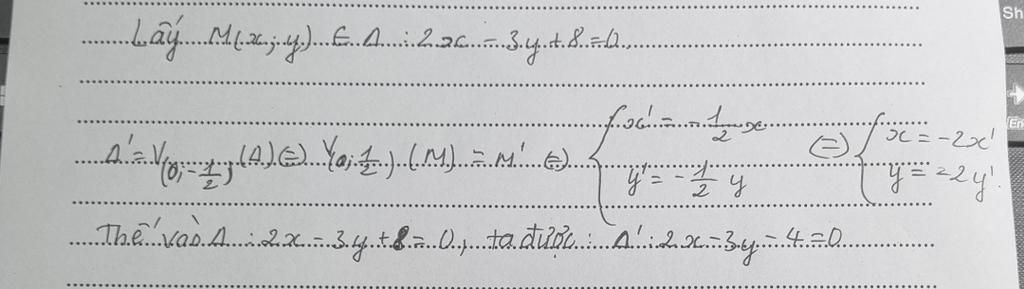 Lấy M(x; y) ∈ Δ : 2x - 3y + 8 = 0
Δ' = V(0; -1/2) (Δ) ⇔ V(0; 1/2) (M) = M' ⇔ { x' = -1/2 x ; y' = -1/2 y ⇔ { x = -2x' ; y = -2y'
Thế vào Δ : 2x - 3y + 8 = 0, ta được : Δ' : 2x - 3y - 4 = 0
Sh